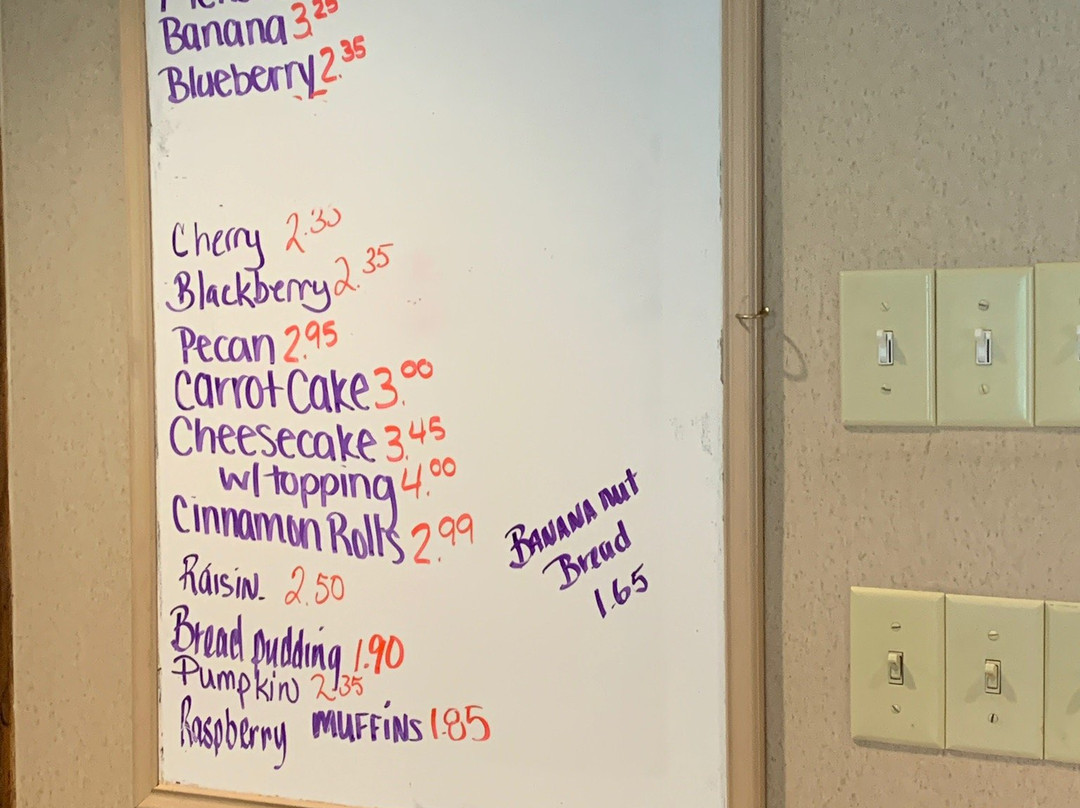 Banana 3.25
Blueberry 2.35
Cherry 2.30
Blackberry 2.35
Pecan 2.95
Carrot Cake 3.00
Cheesecake 3.45
w/topping 4.00
Cinnamon Rolls 2.99
Raisin 2.50
Bread pudding 1.90
Pumpkin 2.35
Raspberry MUFFINS 1.85
BANANA nut
Bread
1.65